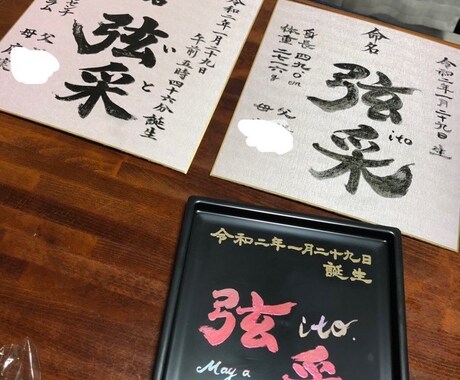 名
令和二年一月二十九日
午前五時四十六分誕生
弦采
いと
センチ
ラム
父
母
命名
令和二年一月二十九日生
弦采
ito
身長 四九.0cm
父
母
令和二年一月二十九日
誕生
弦采
ito.
May a